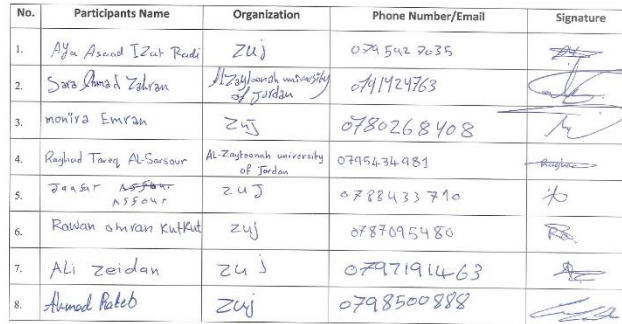 No. Participants Name Organization Phone Number/Email Signature
1. Aya Asaad Izat Radi ZUJ 0795927035
2. Sara Ahmad Zahran Al Zaytoonah university of Jordan
3. monira Emran ZUJ 0780268408
4. Raghad Tareq AL-Sarsour AL-Zaytoonah university of Jordan 0795434981
5. Jaafar Assour ZUJ 0788433710
6. Rawan omran Kutkut ZUJ 0787095480
7. ALi Zeidan ZUJ 0797191463
8. Ahmad Rateb ZUJ 0798500888